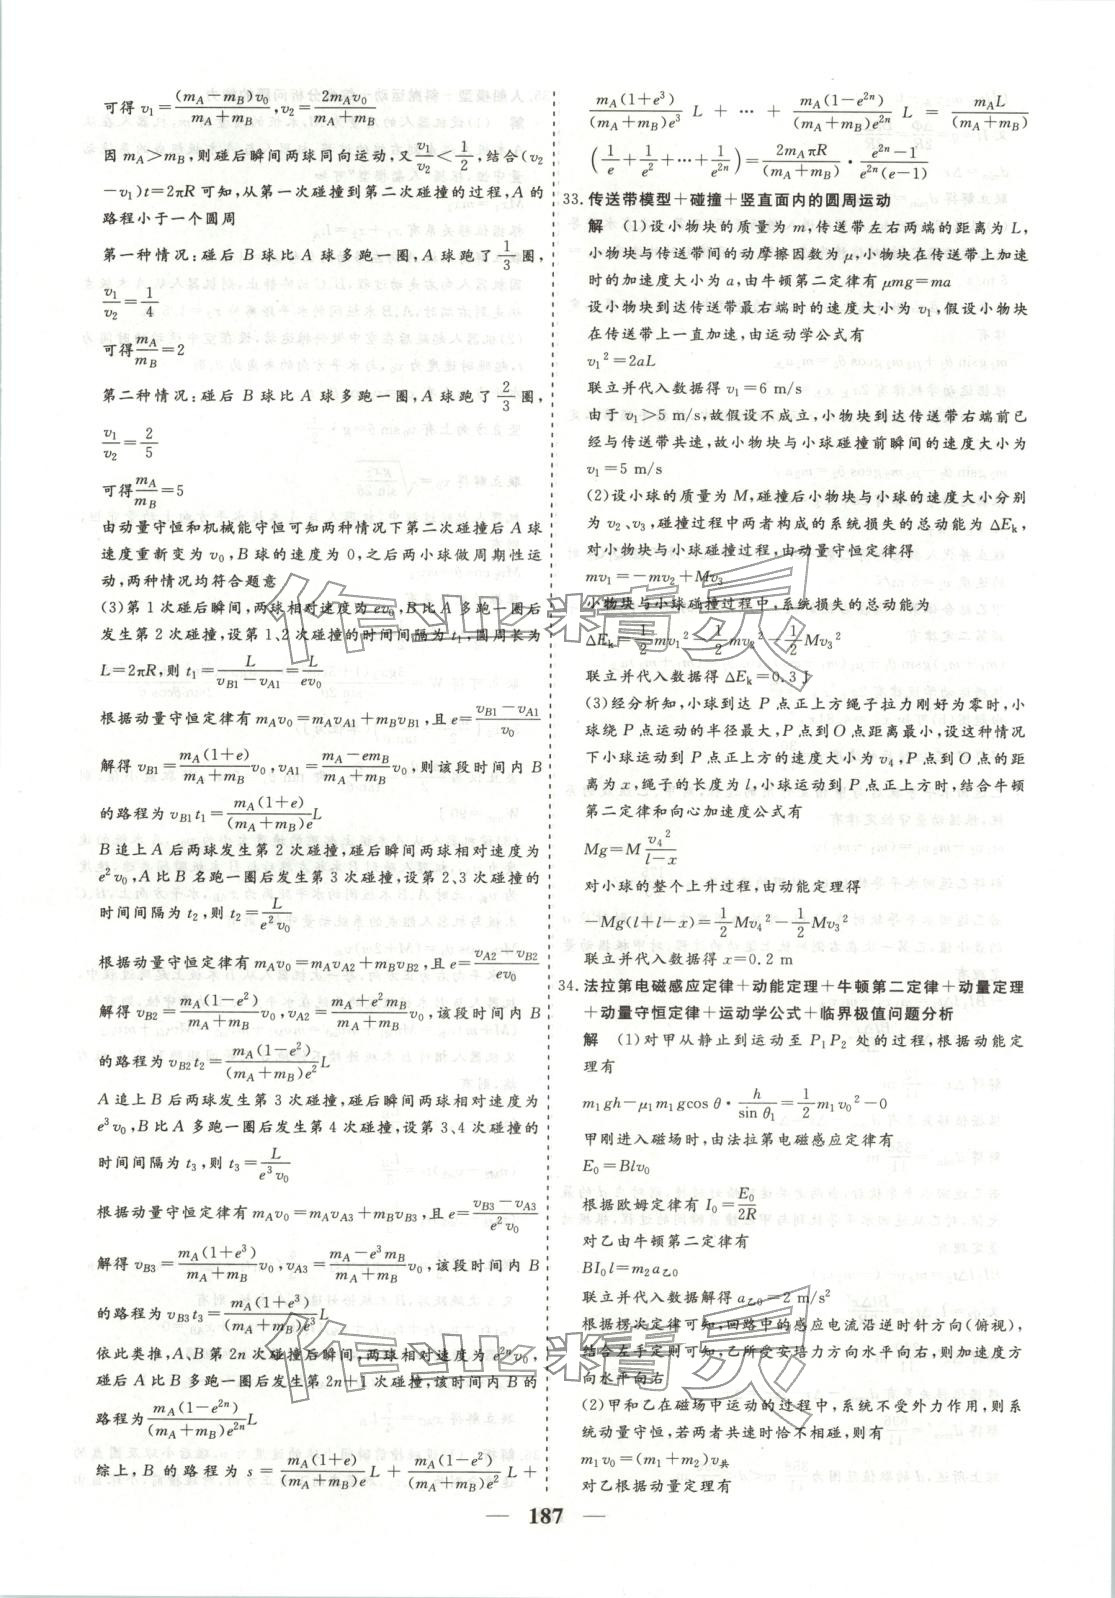 可得 v₁=(m_A−m_B)v₀/(m_A+m_B),v₂=2m_Av₀/(m_A+m_B)
因 m_A>m_B,则碰后瞬间两球同向运动,又 v₁/v₂<1/2,结合(v₂
−v₁)t=2πR 可知,从第一次碰撞到第二次碰撞的过程,A 的
路程小于一个圆周
第一种情况:碰后 B 球比 A 球多跑一圈,A 球跑了 1/3 圈,
v₁/v₂=1/4
可得 m_A/m_B=2
第二种情况:碰后 B 球比 A 球多跑一圈,A 球跑了 2/3 圈,
v₁/v₂=2/5
可得 m_A/m_B=5
由动量守恒和机械能守恒可知两种情况下第二次碰撞后 A 球
速度重新变为 v₀,B 球的速度为 0,之后两小球做周期性运
动,两种情况均符合题意
(3)第 1 次碰后瞬间,两球相对速度为 ev₀,B 比 A 多跑一圈后
发生第 2 次碰撞,设第 1、2 次碰撞的时间间隔为 t₁,圆周长为
L=2πR,则 t₁=L/(v_B1−v_A1)=L/(ev₀)
根据动量守恒定律有 m_Av₀=m_Av_A1+m_Bv_B1,且 e=(v_B1−v_A1)/v₀
解得 v_B1=m_A(1+e)/(m_A+m_B) v₀,v_A1=(m_A−em_B)/(m_A+m_B) v₀,则该段时间内 B
的路程为 v_B1t₁=m_A(1+e)/((m_A+m_B)e) L
B 追上 A 后两球发生第 2 次碰撞,碰后瞬间两球相对速度为
e²v₀,A 比 B 多跑一圈后发生第 3 次碰撞,设第 2、3 次碰撞的
时间间隔为 t₂,则 t₂=L/(e²v₀)
根据动量守恒定律有 m_Av₀=m_Av_A2+m_Bv_B2,且 e=(v_A2−v_B2)/(ev₀)
解得 v_B2=m_A(1−e²)/(m_A+m_B) v₀,v_A2=(m_A+e²m_B)/(m_A+m_B) v₀,该段时间内 B
的路程为 v_B2t₂=m_A(1−e²)/((m_A+m_B)e²) L
A 追上 B 后两球发生第 3 次碰撞,碰后瞬间两球相对速度为
e³v₀,B 比 A 多跑一圈后发生第 4 次碰撞,设第 3、4 次碰撞的
时间间隔为 t₃,则 t₃=L/(e³v₀)
根据动量守恒定律有 m_Av₀=m_Av_A3+m_Bv_B3,且 e=(v_B3−v_A3)/(e²v₀)
解得 v_B3=m_A(1+e³)/(m_A+m_B) v₀,v_A3=(m_A−e³m_B)/(m_A+m_B) v₀,该段时间内 B
的路程为 v_B3t₃=m_A(1+e³)/((m_A+m_B)e³) L
依此类推,A、B 第 2n 次碰撞后瞬间,两球相对速度为 e²ⁿv₀,
碰后 A 比 B 多跑一圈后发生第 2n+1 次碰撞,该时间内 B 的
路程为 m_A(1−e²ⁿ)/((m_A+m_B)e²ⁿ) L
综上,B 的路程为 s=m_A(1+e)/((m_A+m_B)e) L+m_A(1−e²)/((m_A+m_B)e²) L+
m_A(1+e³)/((m_A+m_B)e³) L+…+m_A(1−e²ⁿ)/((m_A+m_B)e²ⁿ) L=m_AL/(m_A+m_B)
(1/e+1/e²+…+1/e²ⁿ)=2m_AπR/(m_A+m_B)·(e²ⁿ−1)/(e²ⁿ(e−1))
33. 传送带模型+碰撞+竖直面内的圆周运动
解 (1)设小物块的质量为 m,传送带左右两端的距离为 L,
小物块与传送带间的动摩擦因数为 μ,小物块在传送带上加速
时的加速度大小为 a,由牛顿第二定律有 μmg=ma
设小物块到达传送带最右端时的速度大小为 v₁,假设小物块
在传送带上一直加速,由运动学公式有
v₁²=2aL
联立并代入数据得 v₁=6 m/s
由于 v₁>5 m/s,故假设不成立,小物块到达传送带右端前已
经与传送带共速,故小物块与小球碰撞前瞬间的速度大小为
v₁=5 m/s
(2)设小球的质量为 M,碰撞后小物块与小球的速度大小分别
为 v₂、v₃,碰撞过程中两者构成的系统损失的总动能为 ΔE_k,
对小物块与小球碰撞过程,由动量守恒定律得
mv₁=−mv₂+Mv₃
小物块与小球碰撞过程中,系统损失的总动能为
ΔE_k=1/2 mv₁²−1/2 mv₂²−1/2 Mv₃²
联立并代入数据得 ΔE_k=0.3 J
(3)经分析知,小球到达 P 点正上方绳子拉力刚好为零时,小
球绕 P 点运动的半径最大,P 点到 O 点距离最小,设这种情况
下小球运动到 P 点正上方的速度大小为 v₄,P 点到 O 点的距
离为 x,绳子的长度为 l,小球运动到 P 点正上方时,结合牛顿
第二定律和向心加速度公式有
Mg=M v₄²/(l−x)
对小球的整个上升过程,由动能定理得
−Mg(l+l−x)=1/2 Mv₄²−1/2 Mv₃²
联立并代入数据得 x=0.2 m
34. 法拉第电磁感应定律+动能定理+牛顿第二定律+动量定理
+动量守恒定律+运动学公式+临界极值问题分析
解 (1)对甲从静止到运动至 P₁P₂ 处的过程,根据动能定
理有
m₁gh−μ₁m₁gcos θ·h/sin θ₁=1/2 m₁v₀²−0
甲刚进入磁场时,由法拉第电磁感应定律有
E₀=Blv₀
根据欧姆定律有 I₀=E₀/2R
对乙由牛顿第二定律有
BI₀l=m₂a_乙0
联立并代入数据解得 a_乙0=2 m/s²
根据楞次定律可知,回路中的感应电流沿逆时针方向(俯视),
结合左手定则可知,乙所受安培力方向水平向右,则加速度方
向水平向右
(2)甲和乙在磁场中运动的过程,系统不受外力作用,则系
统动量守恒,若两者共速时恰不相碰,则有
m₁v₀=(m₁+m₂)v_共
对乙根据动量定理有
— 187 —
作业精灵
作业精灵